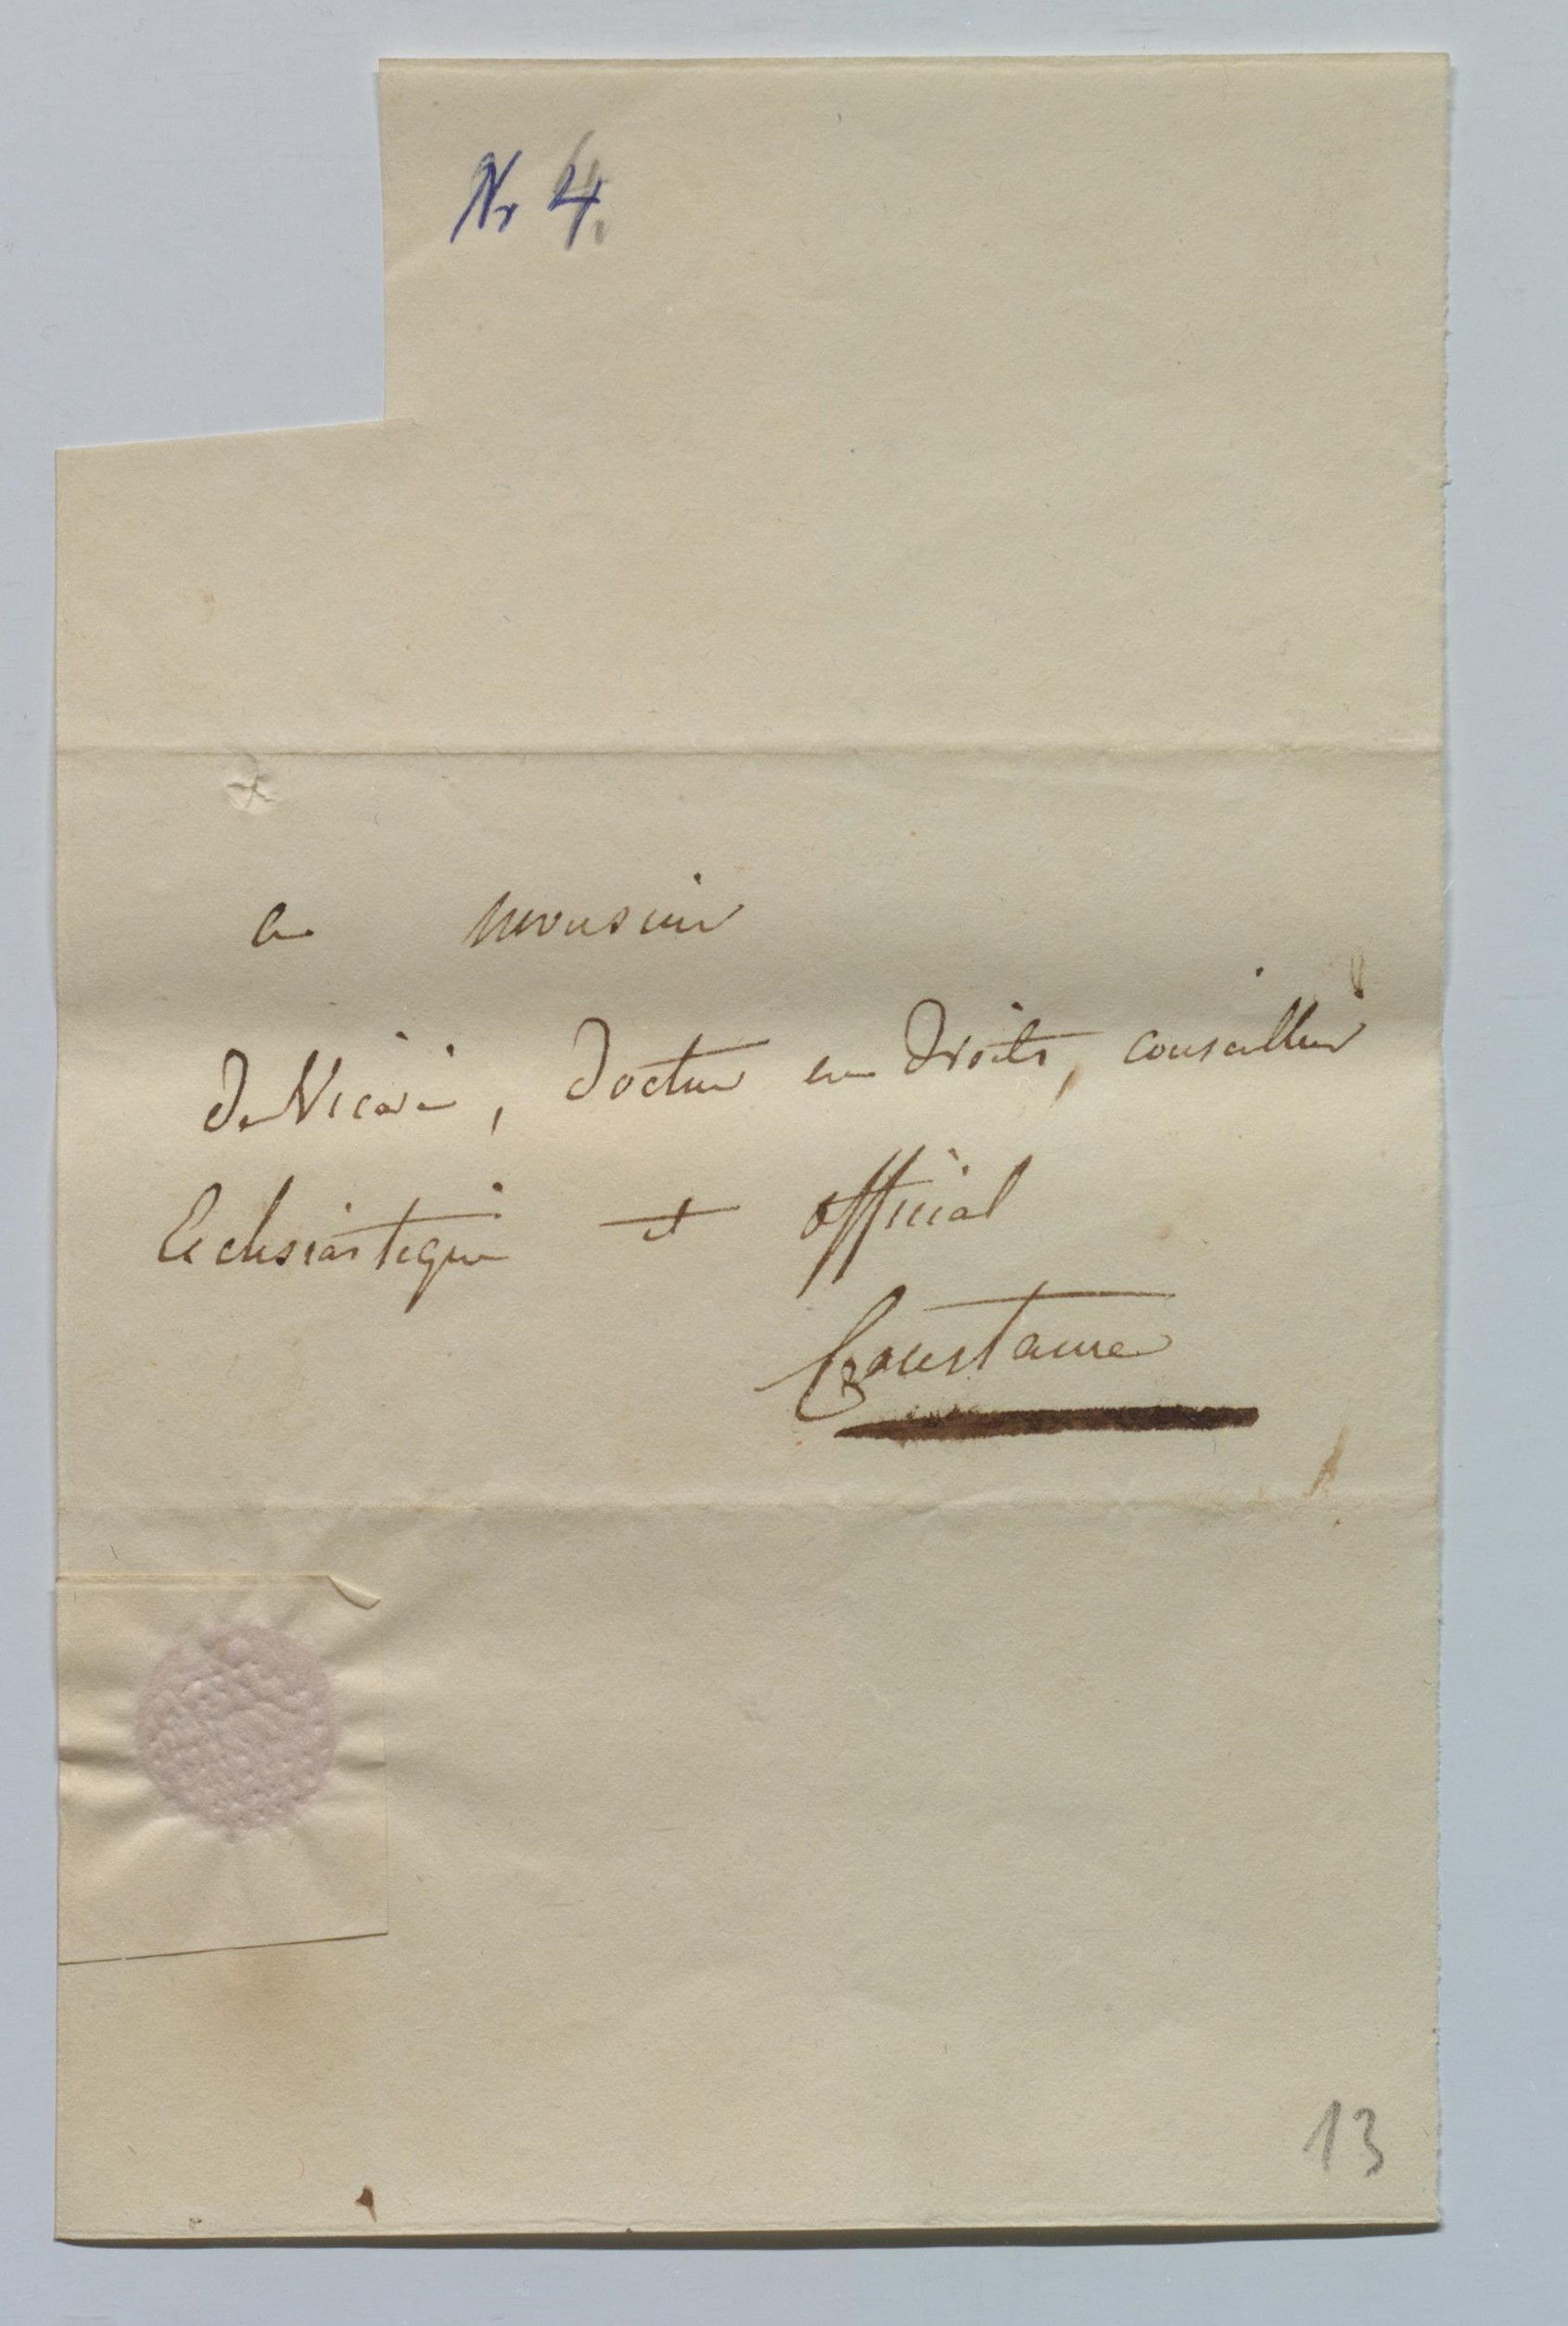 Nr 4.
a monsieur
De Vicari, Docteur en Droits, conseiller
Ecclesiastique et official
Constance
13